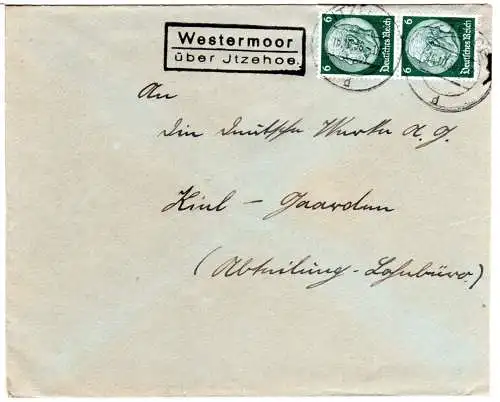 Westermoor
über Jtzehoe.
6 Deutsches Reich
6 Deutsches Reich
d
d
An
Die Deutsche Werke A. G.
Kiel – Gaarden
(Abteilung - Lohnbüro.)